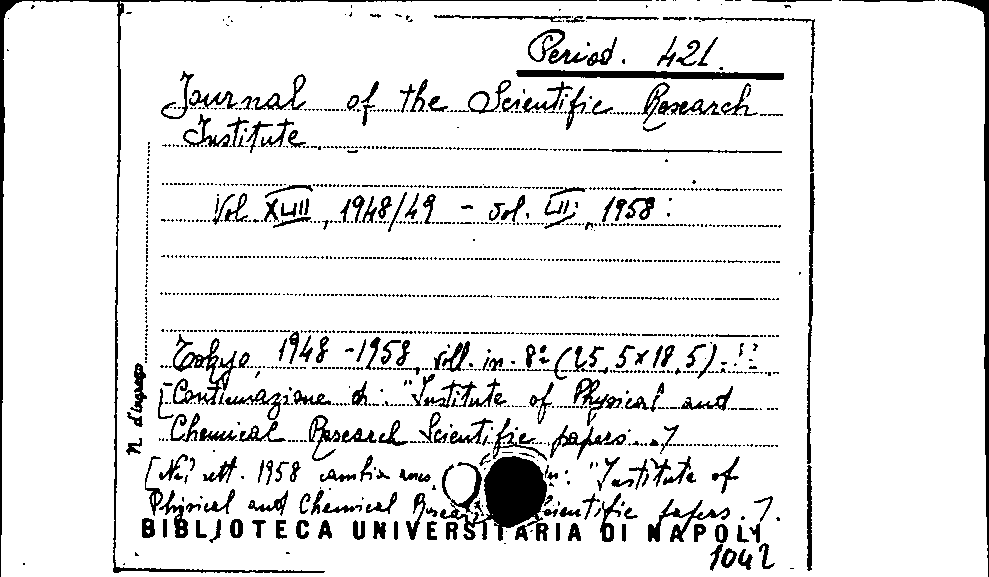 Period. 421.
Journal of the Scientific Research
Institute.
Vol. XLIII, 1948/49 - vol. LII, 1958
Tokyo, 1948-1958, ill. in-8º (25,5x18,5).
[Continuazione di: "Institute of Physical and
Chemical Research Scientific papers...]
[Nel sett. 1958 cambia in: "Institute of
Physical and Chemical Scientific papers.].
N. d'ingresso
BIBLIOTECA UNIVERSITARIA DI NAPOLI
1042